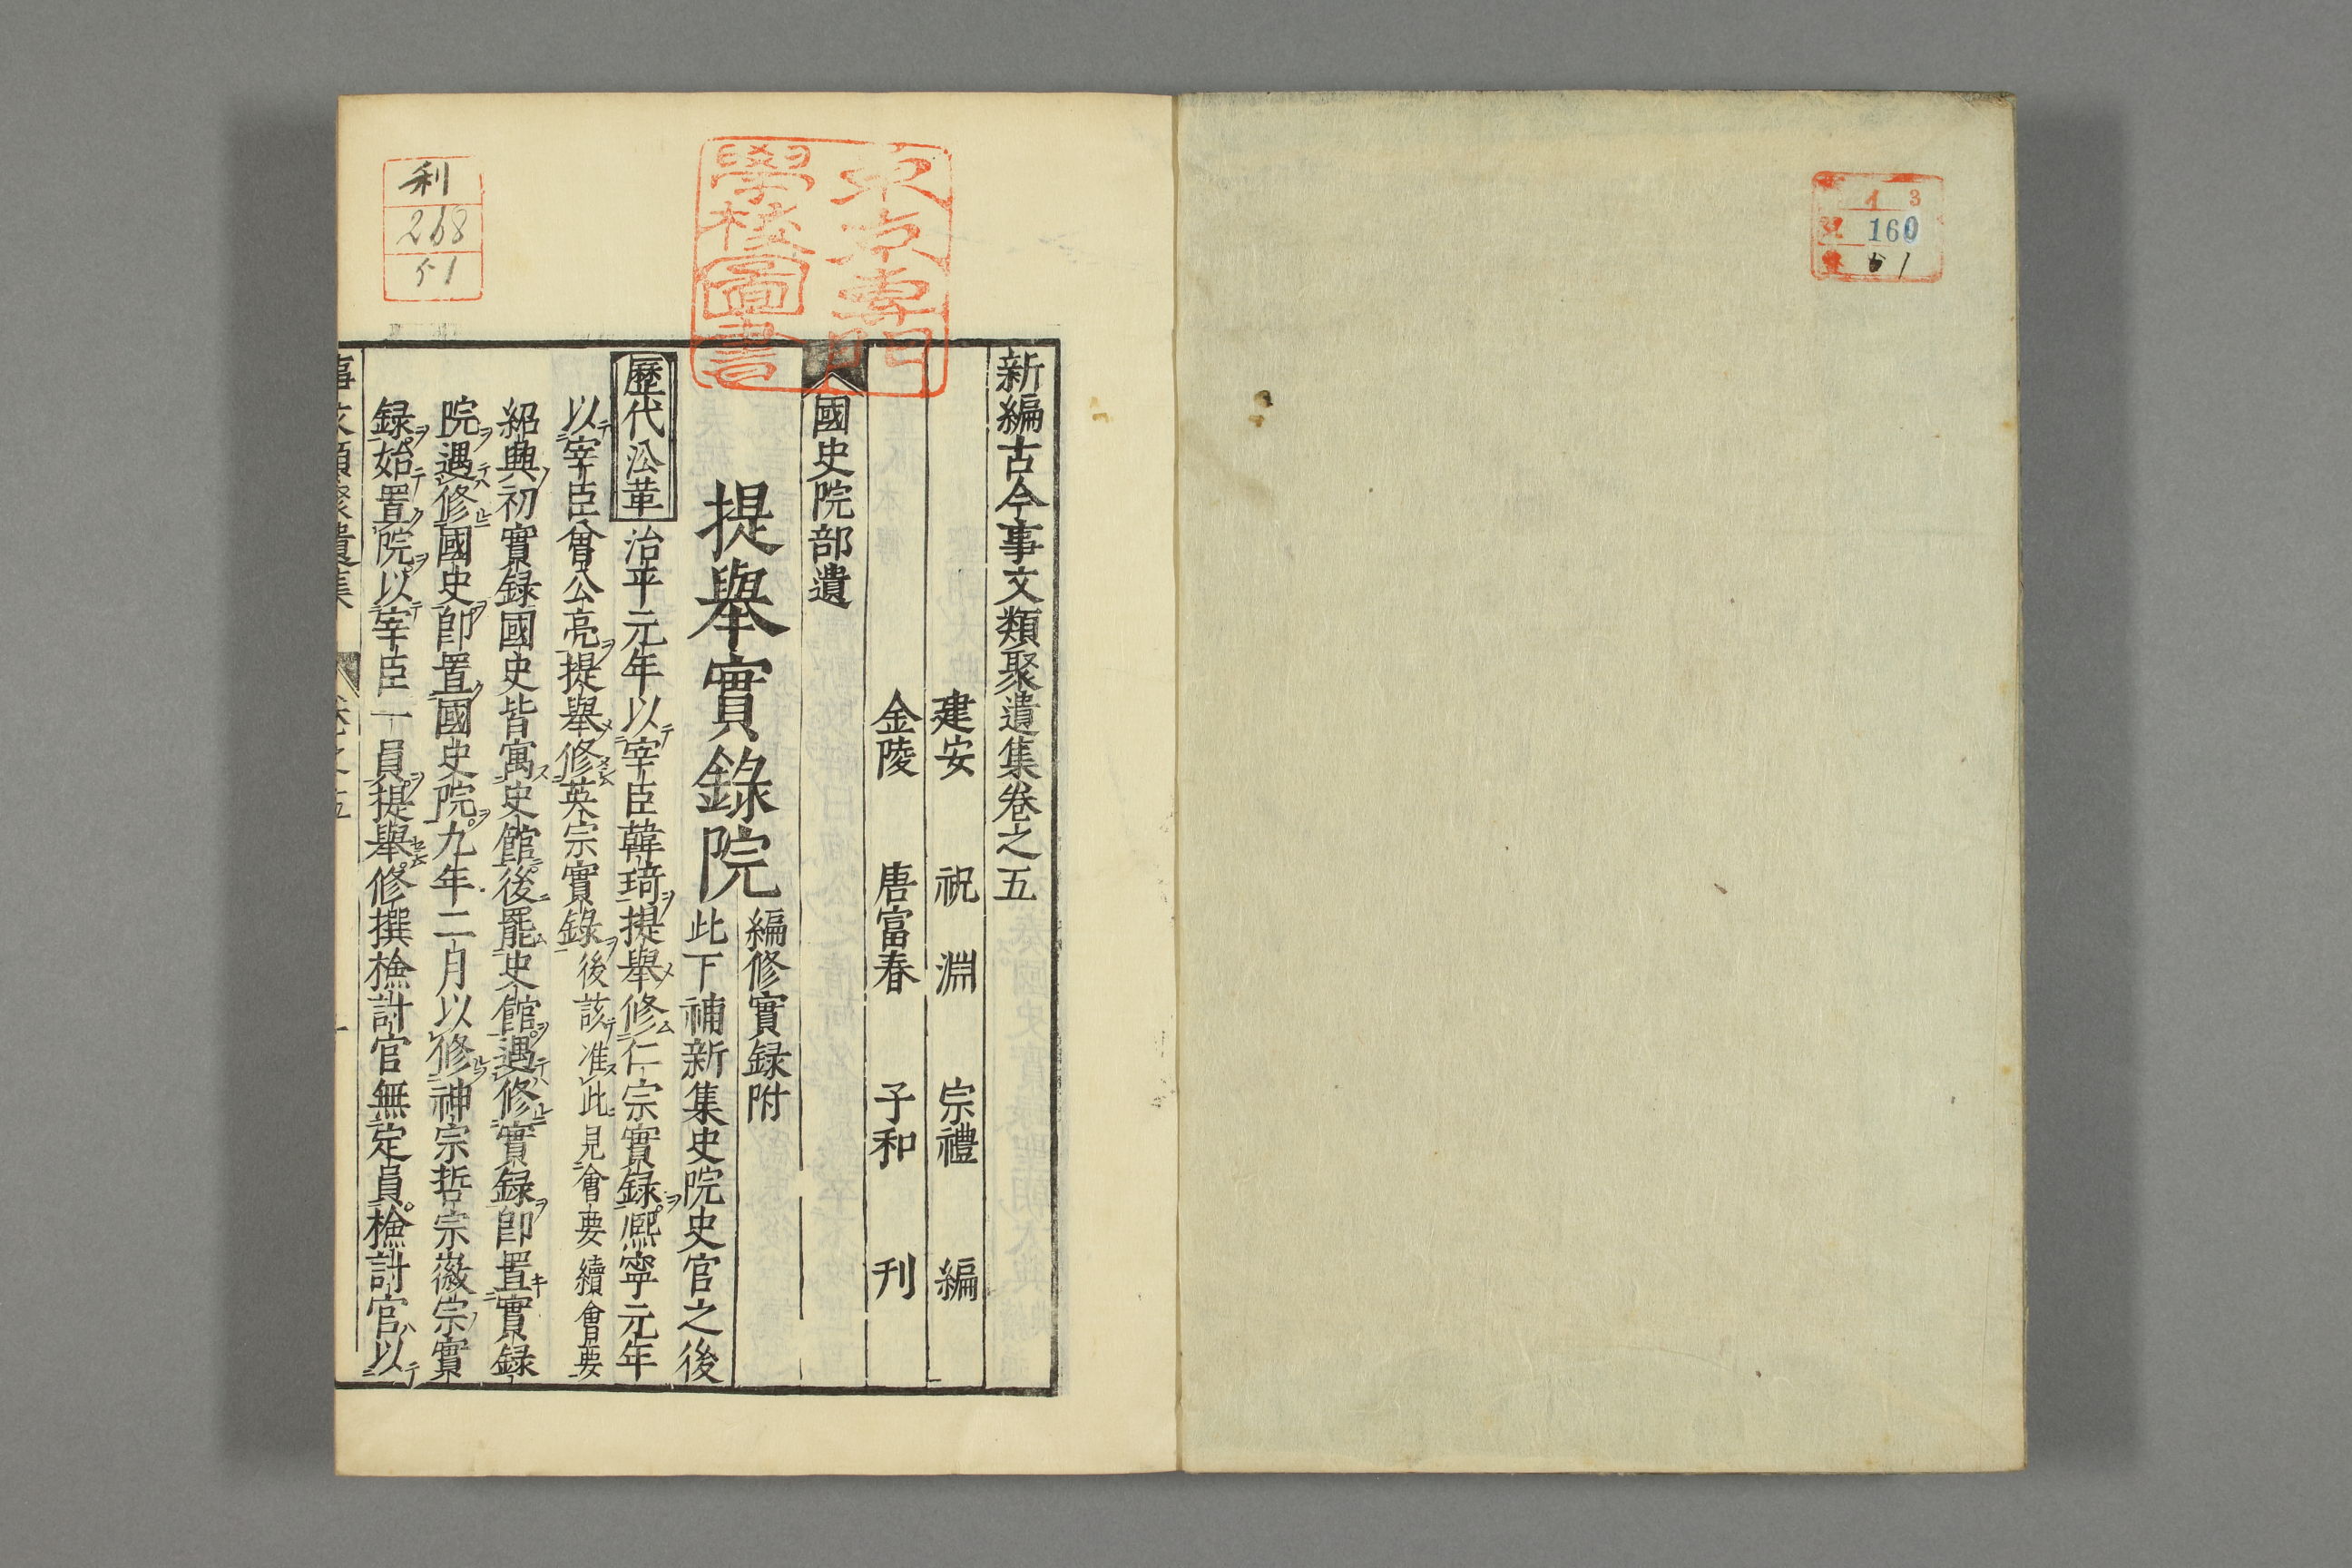 イ 3
號 160
51
東京專門
學校圖書
利
268
51
新編古今事文類聚遺集卷之五
建安 祝 淵 宗禮 編
金陵 唐富春 子和 刊
國史院部遺
提舉實錄院
編修實録附
此下補新集史院史官之後
歷代㳂革 治平元年以宰臣韓琦提舉修仁宗實録熈寧元年
以宰臣會公亮提舉修英宗實錄後該准此見會要續會要
紹興初實録國史皆寓史館後罷史館遇修實録卽置實録
院遇修國史卽置國史院九年二月以修神宗哲宗徽宗實
録始置院以宰臣一員提舉修撰檢討官無定員檢討官以
事文類聚遺集 卷之五 一